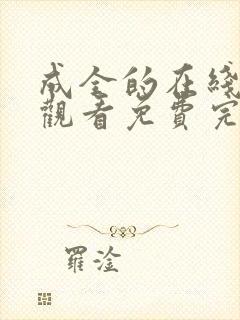 成全的在綫
觀看免費完
羅淦